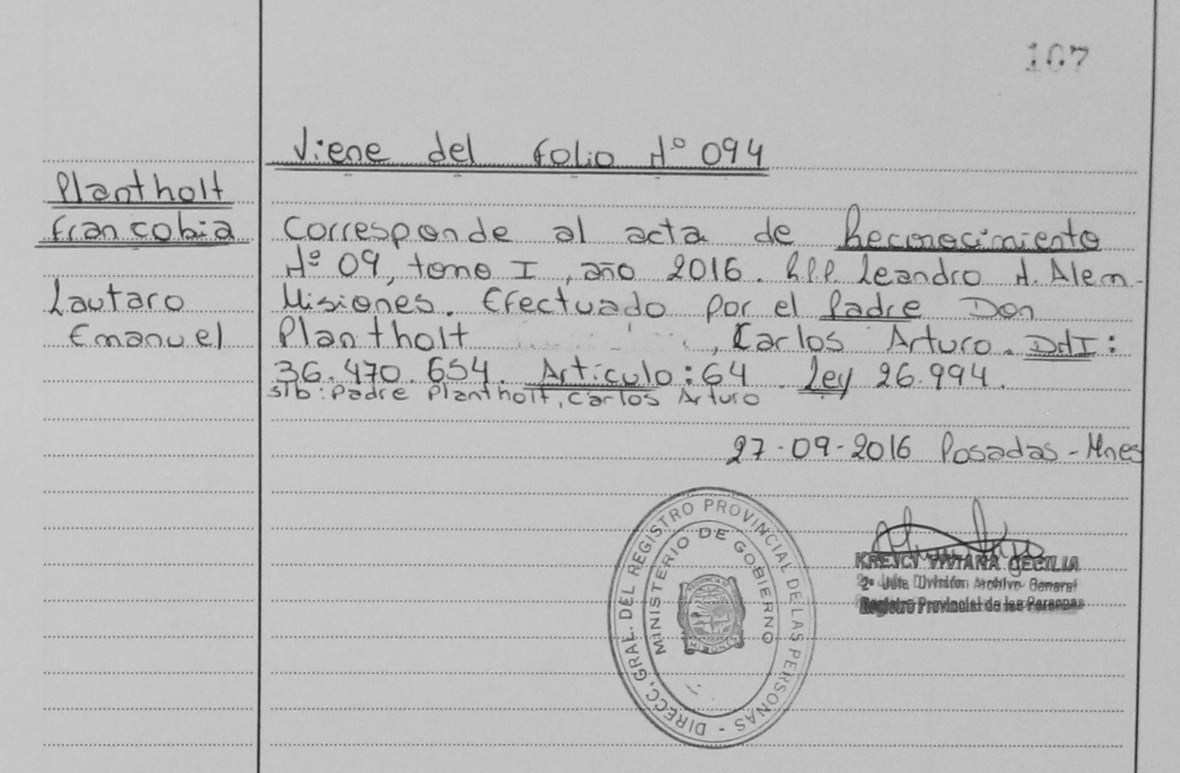 107
Viene del folio Nº 094
Plantholt
Francobia
Corresponde al acta de Reconocimiento
Nº 09, tomo I, año 2016. R.P.P. Leandro N. Alem-
Lautaro
Misiones. Efectuado por el Padre Don
Emanuel
Plantholt , Carlos Arturo. DNI:
36.470.654. Artículo: 64 Ley 26.994.
S/b: Padre Plantholt, Carlos Arturo
27-09-2016 Posadas - Mnes
DIRECC. GRAL. DEL REGISTRO PROVINCIAL DE LAS PERSONAS -
MINISTERIO DE GOBIERNO
MISIONES
KREJCI VIVIANA CECILIA
2º Jefa División Archivo General
Registro Provincial de las Personas